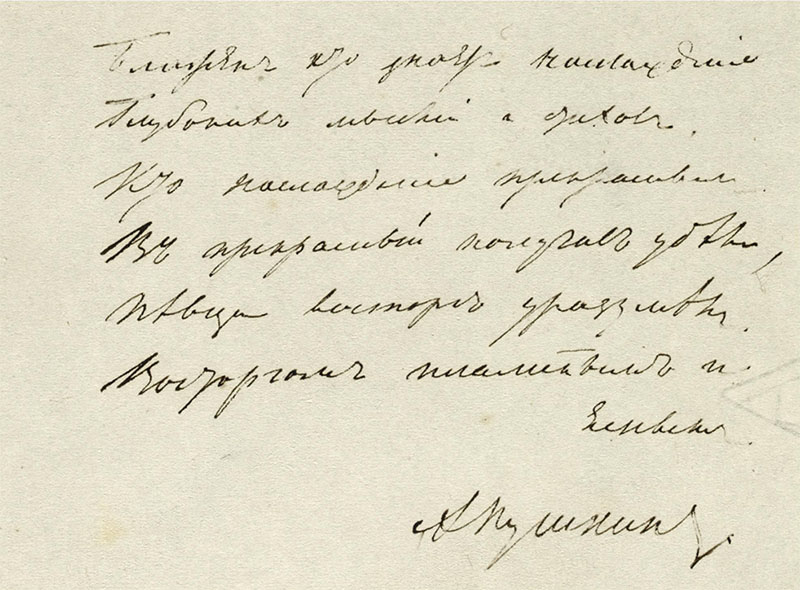 Блаженъ кто знаетъ наслажденіе
Глубокихъ мыслей и стиховъ.
Кто наслажденіе прекраснымъ
Въ прекрасный получилъ удѣлъ,
Пѣвца восторгъ уразумѣлъ
Восторгомъ пламеннымъ и
яснымъ
А Пушкинъ.